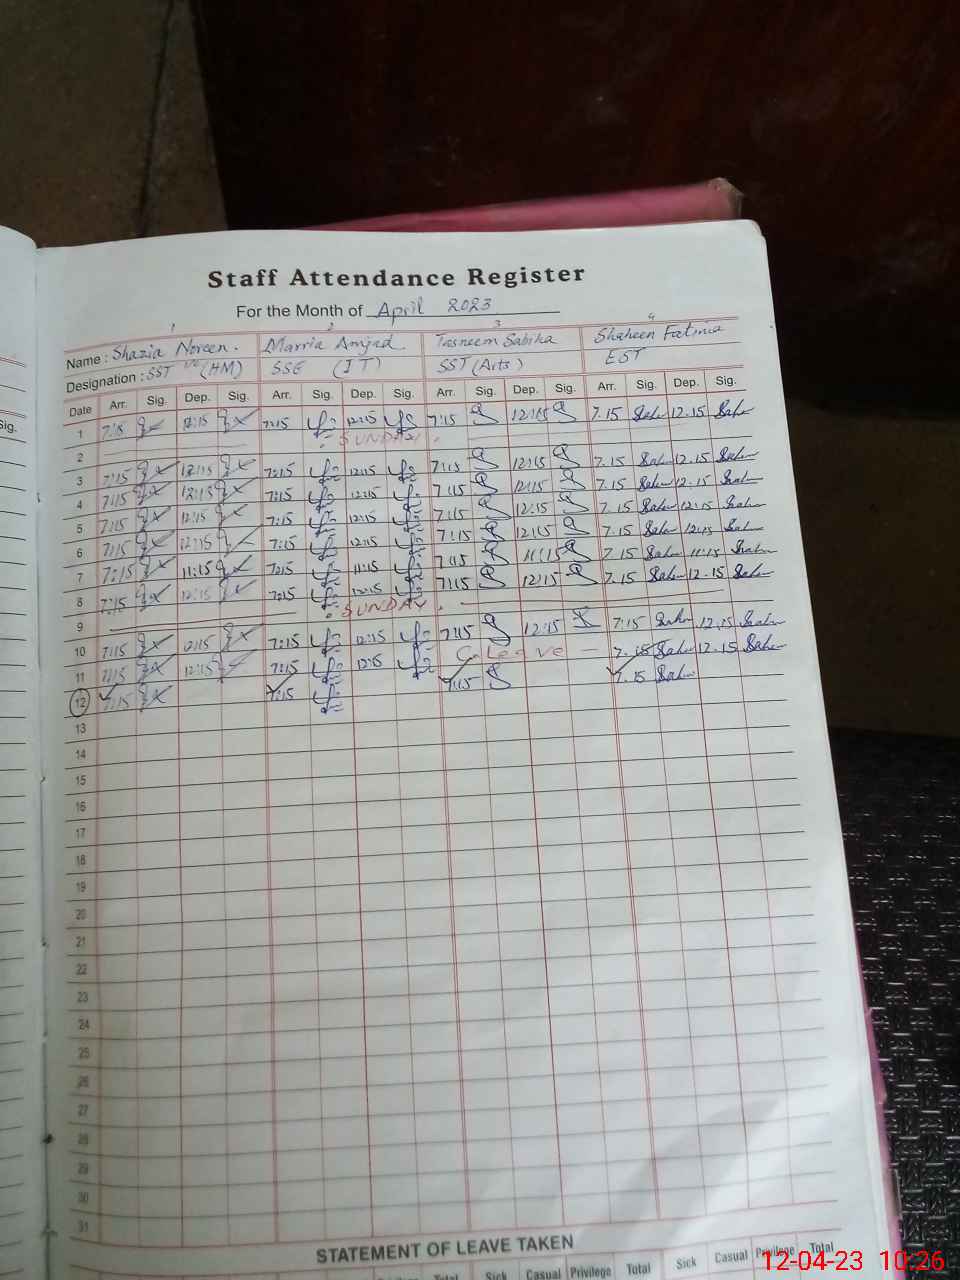 Staff Attendance Register
For the Month of April 2023
1 2 3 4
Name : Shazia Noreen. Marria Amjad. Tasneem Sabiha Shaheen Fatima
Designation : SST (HM) SSE (IT) SST (Arts) EST
Date Arr. Sig. Dep. Sig. Arr. Sig. Dep. Sig. Arr. Sig. Dep. Sig. Arr. Sig. Dep. Sig.
Sig.
1 7:15 12:15 7:15 12:15 7:15 12:15 7.15 12.15
2 SUNDAY.
3 7:15 12:15 7:15 12:15 7:15 12:15 7.15 12.15
4 7:15 12:15 7:15 12:15 7:15 12:15 7.15 12.15
5 7:15 12:15 7:15 12:15 7:15 12:15 7.15 12:15
6 7:15 12:15 7:15 12:15 7:15 12:15 7.15 12:15
7 7:15 11:15 7:15 11:15 7:15 11:15 7.15 11:15
8 7:15 12:15 7:15 12:15 7:15 12:15 7.15 12.15
9 SUNDAY.
10 7:15 12:15 7:15 12:15 7:15 12:15 7:15 12.15
11 7:15 12:15 7:15 12:15 C. leave 7.15 12.15
12 7:15 7:15 7:15 7.15
13
14
15
16
17
18
19
20
21
22
23
24
25
26
27
28
29
30
31
STATEMENT OF LEAVE TAKEN
Privilege Total Sick Casual Privilege Total Sick Casual Privilege Total
12-04-23 10:26